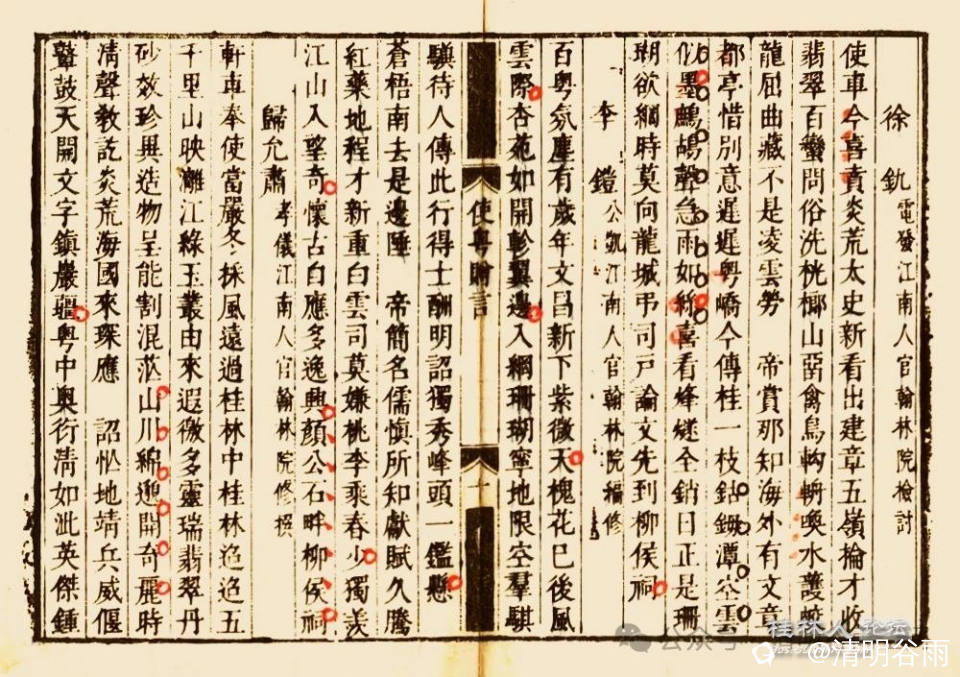 徐釚 電發江南人官翰林院檢討
使車今喜賁炎荒太史新看出建章五嶺掄才收
翡翠百蠻問俗洗桄榔山禽鳥鈎輈喚水護蛟
龍屈曲藏不是凌雲勞 帝賞那知海外有文章
都亭惜別意遲遲粵嶠今傳桂一枝鈷鉧潭空雲
似墨鷓鴣聲急雨如絲喜看烽燧全銷日正是珊
瑚欲網時莫向龍城弔司戸論文先到柳侯祠
李鎧 公凱江南人官翰林院編修
百粵氛塵有歲年文昌新下紫微天槐花已後風
雲際杏苑如開軫翼邊入網珊瑚寧地限空羣騏
使粵贈言
十
驥待人傳此行得士酬明詔獨秀峰頭一鑑懸
蒼梧南去是邊陲 帝簡名儒慎所知獻賦久騰
紅藥地程才新重白雲司莫嫌桃李乘春少獨羨
江山入望奇懷古自應多逸興顏公石畔柳侯祠
歸允肅 孝儀江南人官翰林院修撰
軒車奉使當嚴冬採風遠過桂林中桂林迢迢五
千里山映離江綠玉叢由來遐徼多靈瑞翡翠丹
砂效珍異造物呈能割混茫山川綿邈開奇麗時
清聲教訖炎荒海國來琛應 詔忙地靖兵威偃
鼙鼓天開文字鎮嚴疆粵中奧衍清如泚英傑鍾
公众号
桂林人论坛
@清明谷雨